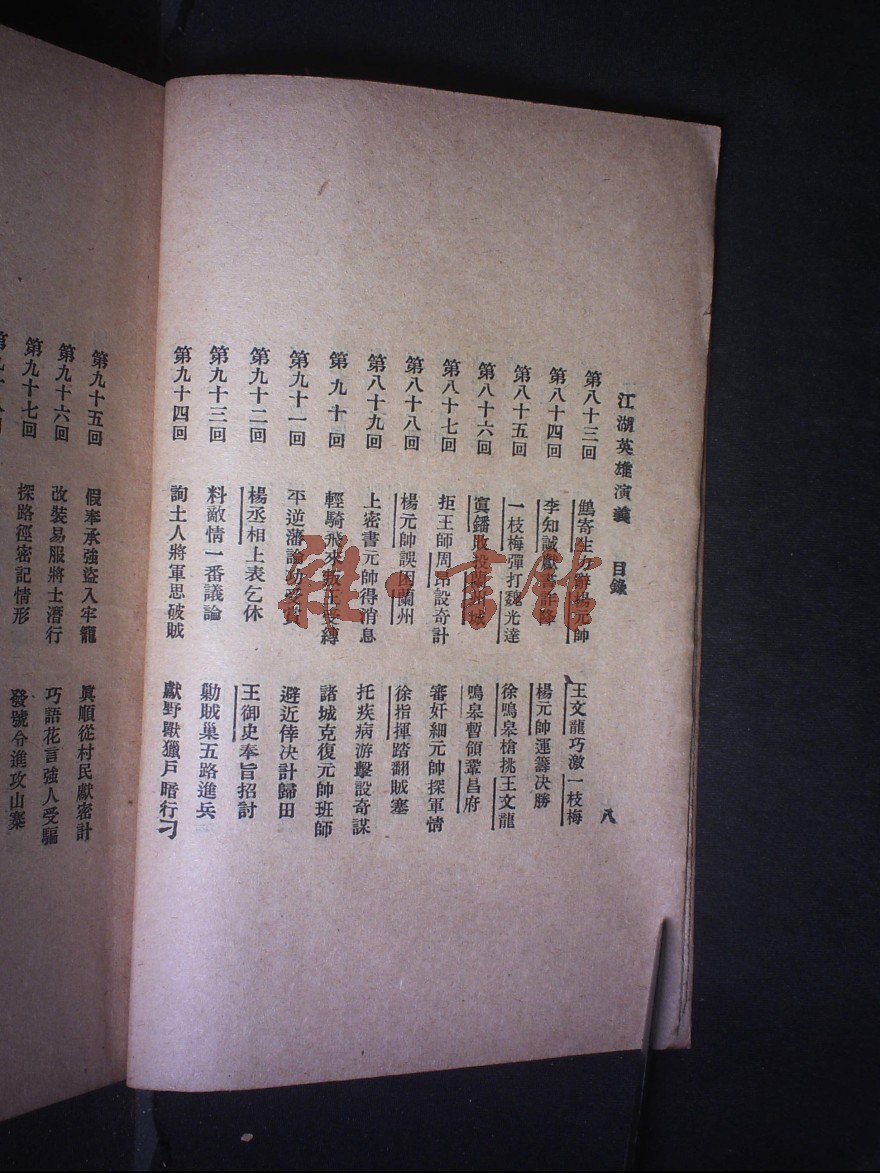 江湖英雄演義　目錄　八
第八十三回　鷦寄生力辭楊元帥　王文龍巧激一枝梅
第八十四回　李知誠獻書詐降　楊元帥運籌決勝
第八十五回　一枝梅彈打魏光達　徐鳴皋槍挑王文龍
第八十六回　寘鐇敗投蘭州城　鳴皋暫領鞏昌府
第八十七回　拒王師周昂設奇計　審奸細元帥探軍情
第八十八回　楊元帥誤困蘭州　徐指揮踏翻賊塞
第八十九回　上密書元帥得消息　托疾病游擊設奇謀
第九十回　輕騎飛來叛王受縛　諸城克復元帥班師
第九十一回　平逆藩論功受賞　避近倖決計歸田
第九十二回　楊丞相上表乞休　王御史奉旨招討
第九十三回　料敵情一番議論　勦賊巢五路進兵
第九十四回　詢土人將軍思破賊　獻野獸獵戶暗行刁
第九十五回　假奉承強盜入牢籠　眞順從村民獻密計
第九十六回　改裝易服將士潛行　巧語花言強人受騙
第九十七回　探路徑密記情形　發號令進攻山寨
雅昌書館